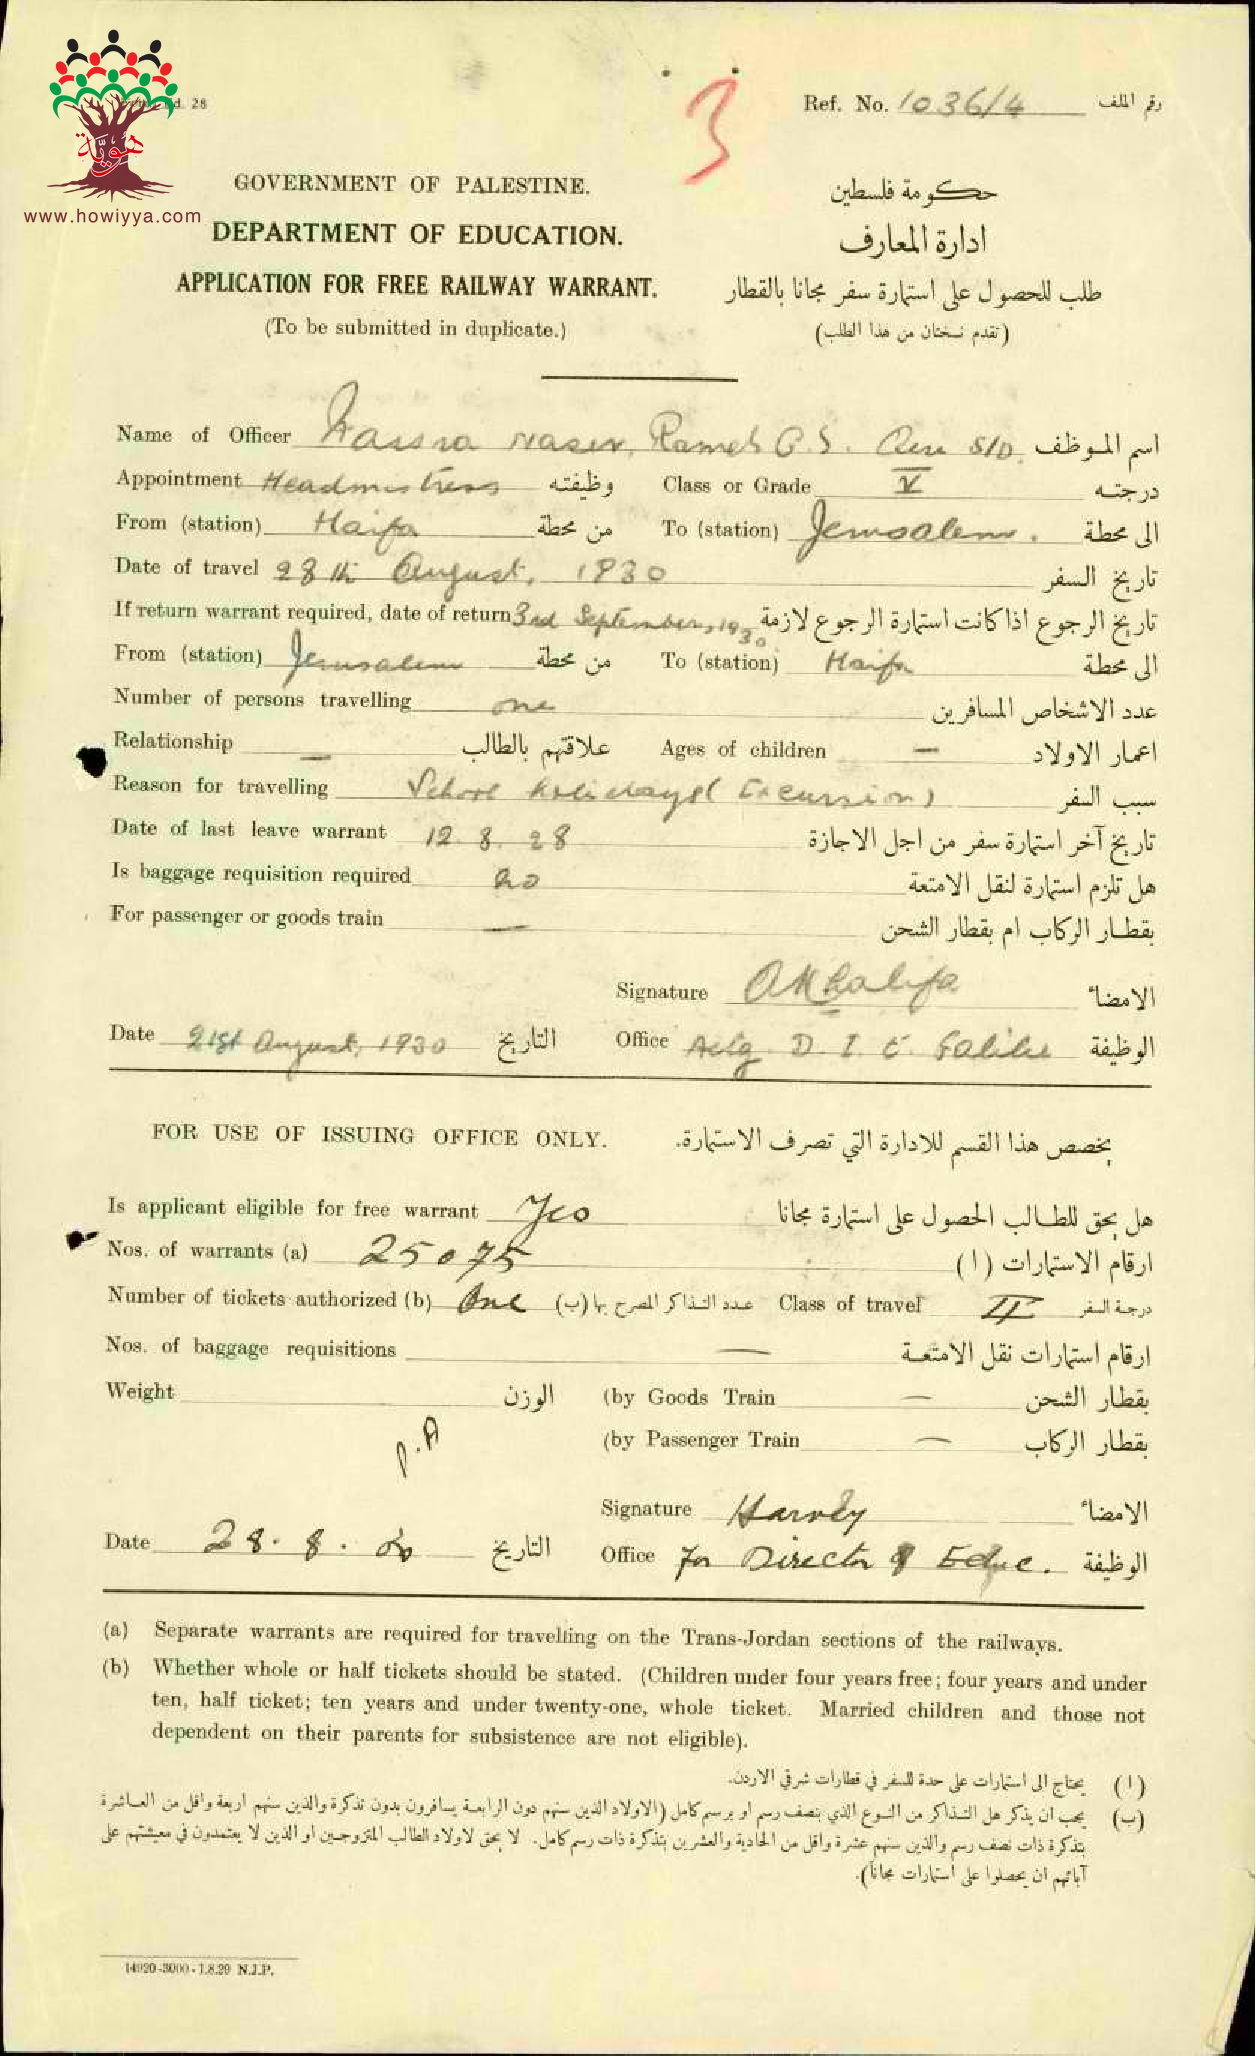 هوية
www.howiyya.com
d. 28
3
Ref. No. 1036/4 رقم الملف
GOVERNMENT OF PALESTINE.
حكومة فلسطين
DEPARTMENT OF EDUCATION.
ادارة المعارف
APPLICATION FOR FREE RAILWAY WARRANT.
طلب للحصول على استمارة سفر مجانا بالقطار
(To be submitted in duplicate.)
(تقدم نسختان من هذا الطلب)
Name of Officer Nassra Naser, Rameh G.S. S/D. اسم الموظف
Appointment Headmistress وظيفته Class or Grade V درجته
From (station) Haifa من محطة To (station) Jerusalem. الى محطة
Date of travel 28th August, 1930 تاريخ السفر
If return warrant required, date of return 3rd September, 1930 تاريخ الرجوع اذا كانت استمارة الرجوع لازمة
From (station) Jerusalem من محطة To (station) Haifa الى محطة
Number of persons travelling one عدد الاشخاص المسافرين
Relationship — علاقتهم بالطالب Ages of children — اعمار الاولاد
Reason for travelling School holidays (Excursion) سبب السفر
Date of last leave warrant 12. 8. 28 تاريخ آخر استمارة سفر من اجل الاجازة
Is baggage requisition required no هل تلزم استمارة لنقل الامتعة
For passenger or goods train — بقطار الركاب ام بقطار الشحن
Signature AKhalifa الامضاء
Date 21st August, 1930 التاريخ Office Actg. D. I. E. Galilee الوظيفة
FOR USE OF ISSUING OFFICE ONLY. يخصص هذا القسم للادارة التي تصرف الاستمارة.
Is applicant eligible for free warrant Yes هل يحق للطالب الحصول على استمارة مجانا
Nos. of warrants (a) 25075 ارقام الاستمارات (ا)
Number of tickets authorized (b) One عدد التذاكر المصرح بها (ب) Class of travel II درجة السفر
Nos. of baggage requisitions — ارقام استمارات نقل الامتعة
Weight الوزن (by Goods Train — بقطار الشحن
(by Passenger Train — بقطار الركاب
P.A
Signature Harvey الامضاء
Date 28. 8. 30 التاريخ Office for Director of Educ. الوظيفة
(a) Separate warrants are required for travelling on the Trans-Jordan sections of the railways.
(b) Whether whole or half tickets should be stated. (Children under four years free; four years and under
ten, half ticket; ten years and under twenty-one, whole ticket. Married children and those not
dependent on their parents for subsistence are not eligible).
(ا) يحتاج الى استمارات على حدة للسفر في قطارات شرقي الاردن.
(ب) يجب ان يذكر هل التذاكر من النوع الذي بنصف رسم او برسم كامل (الاولاد الذين سنهم دون الرابعة يسافرون بدون تذكرة والذين سنهم اربعة واقل من العاشرة
بتذكرة ذات نصف رسم والذين سنهم عشرة واقل من الحادية والعشرين بتذكرة ذات رسم كامل. لا يحق لاولاد الطالب المتزوجين او الذين لا يعتمدون في معيشتهم على
آبائهم ان يحصلوا على استمارات مجاناً).
14920-3000-1.8.29 N.J.P.